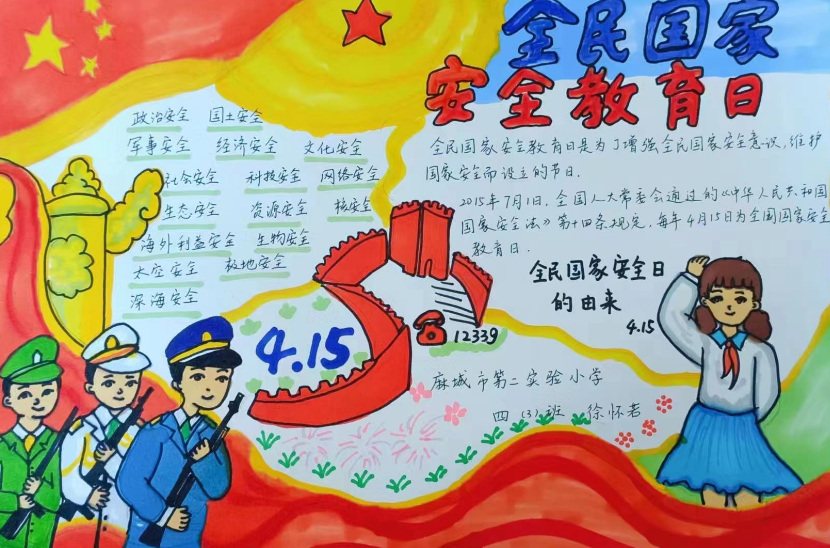 全民国家
安全教育日
政治安全 国土安全
军事安全 经济安全 文化安全
社会安全 科技安全 网络安全
生态安全 资源安全 核安全
海外利益安全 生物安全
太空安全 极地安全
深海安全
全民国家安全教育日是为了增强全民国家安全意识,维护
国家安全而设立的节日.
2015年7月1日,全国人大常委会通过的《中华人民共和国
国家安全法》第十四条规定,每年4月15日为全国国家安全
教育日.
全民国家安全日
的由来
4.15
4.15
12339
麻城市第二实验小学
四(3)班 徐怀若